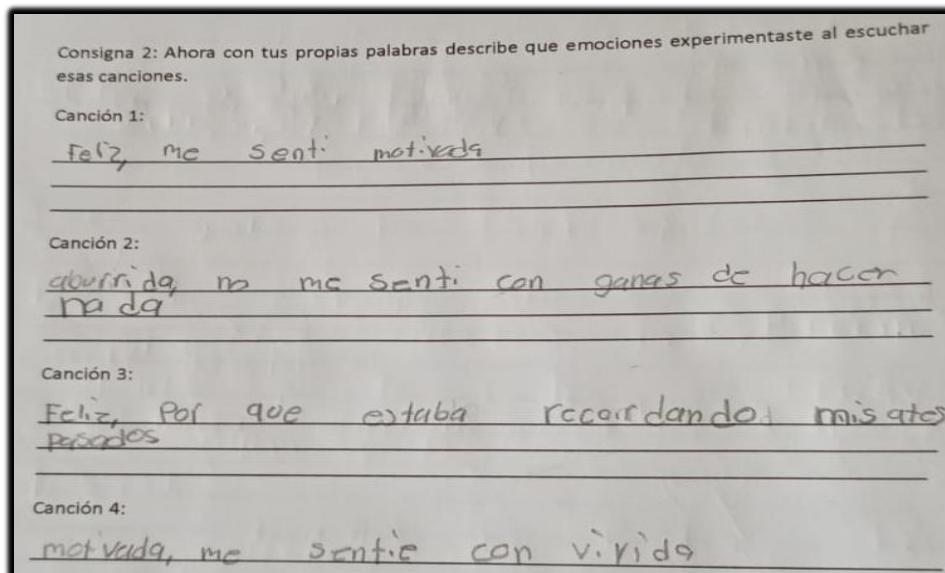 Consigna 2: Ahora con tus propias palabras describe que emociones experimentaste al escuchar
esas canciones.
Canción 1:
Feliz, me senti motivada
Canción 2:
aburrida, no me senti con ganas de hacer
nada
Canción 3:
Feliz, Por que estaba recordando mis
pasados
Canción 4:
motivada, me sentie con